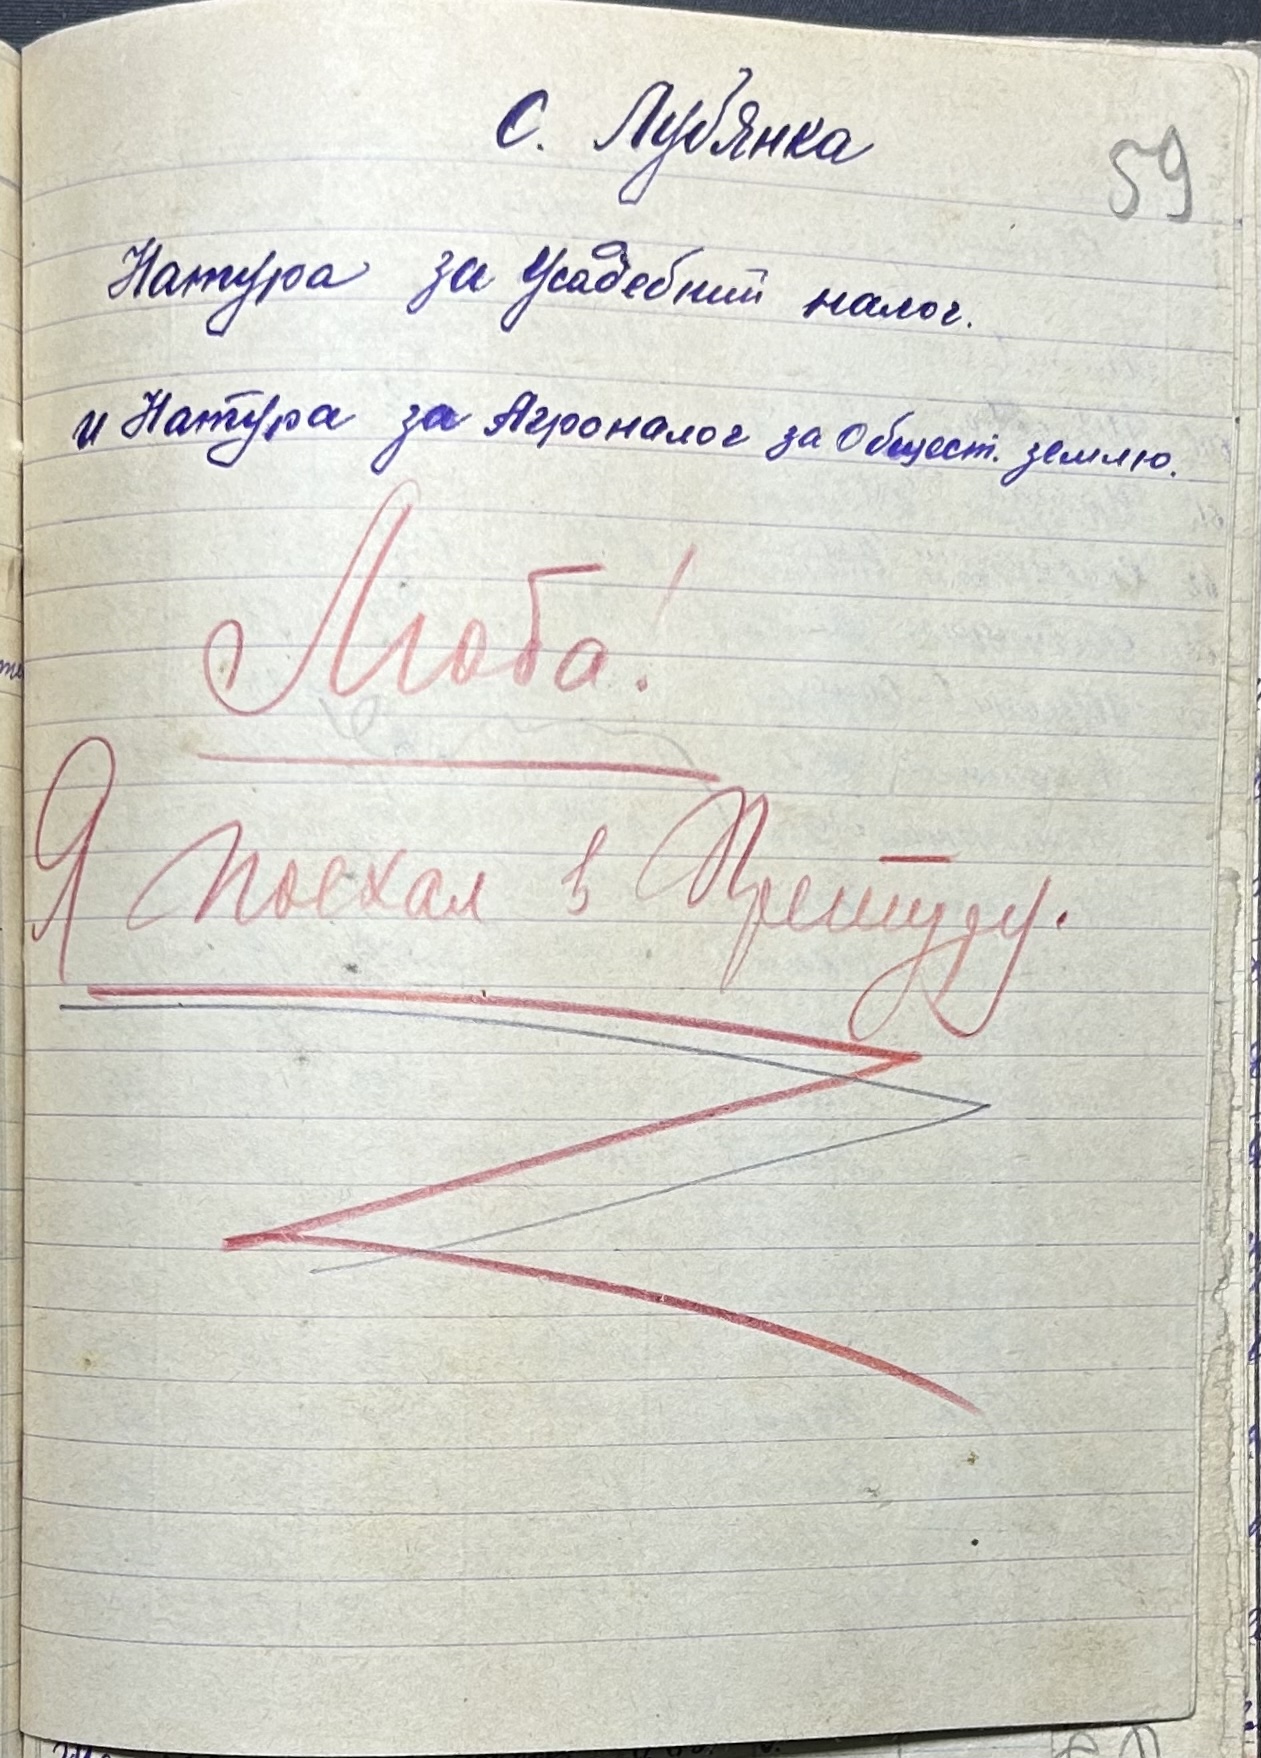 С. Лубянка
59
Натура за Усадебний налог.
и Натура за Агроналог за Общест. землю.
Люба!
Я поехал в